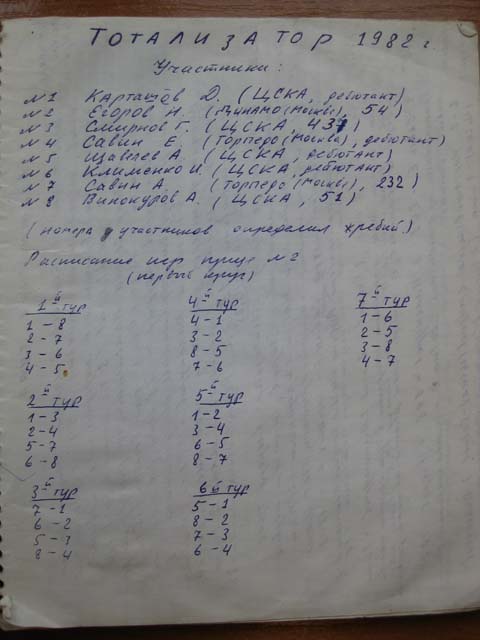 ТОТАЛИЗАТОР 1982 г.
Участники:
№1 Карташов Д. (ЦСКА, дебютант)
№2 Егоров Н. (Динамо (Москва), 54)
№3 Смирнов Г. (ЦСКА, 437)
№4 Савин Е. (Торпедо (Москва), дебютант)
№5 Щавелев А. (ЦСКА, дебютант)
№6 Клименко И. (ЦСКА, дебютант)
№7 Савин А. (Торпедо (Москва), 232)
№8 Винокуров А. (ЦСКА, 51)
(номера участников определил жребий.)
Расписание игр №2
(первый круг)
1й тур
1 – 8
2 – 7
3 – 6
4 – 5
2й тур
1 – 3
2 – 4
5 – 7
6 – 8
3й тур
7 – 1
6 – 2
5 – 3
8 – 4
4й тур
4 – 1
3 – 2
8 – 5
7 – 6
5й тур
1 – 2
3 – 4
6 – 5
8 – 7
6й тур
5 – 1
8 – 2
7 – 3
6 – 4
7й тур
1 – 6
2 – 5
3 – 8
4 – 7